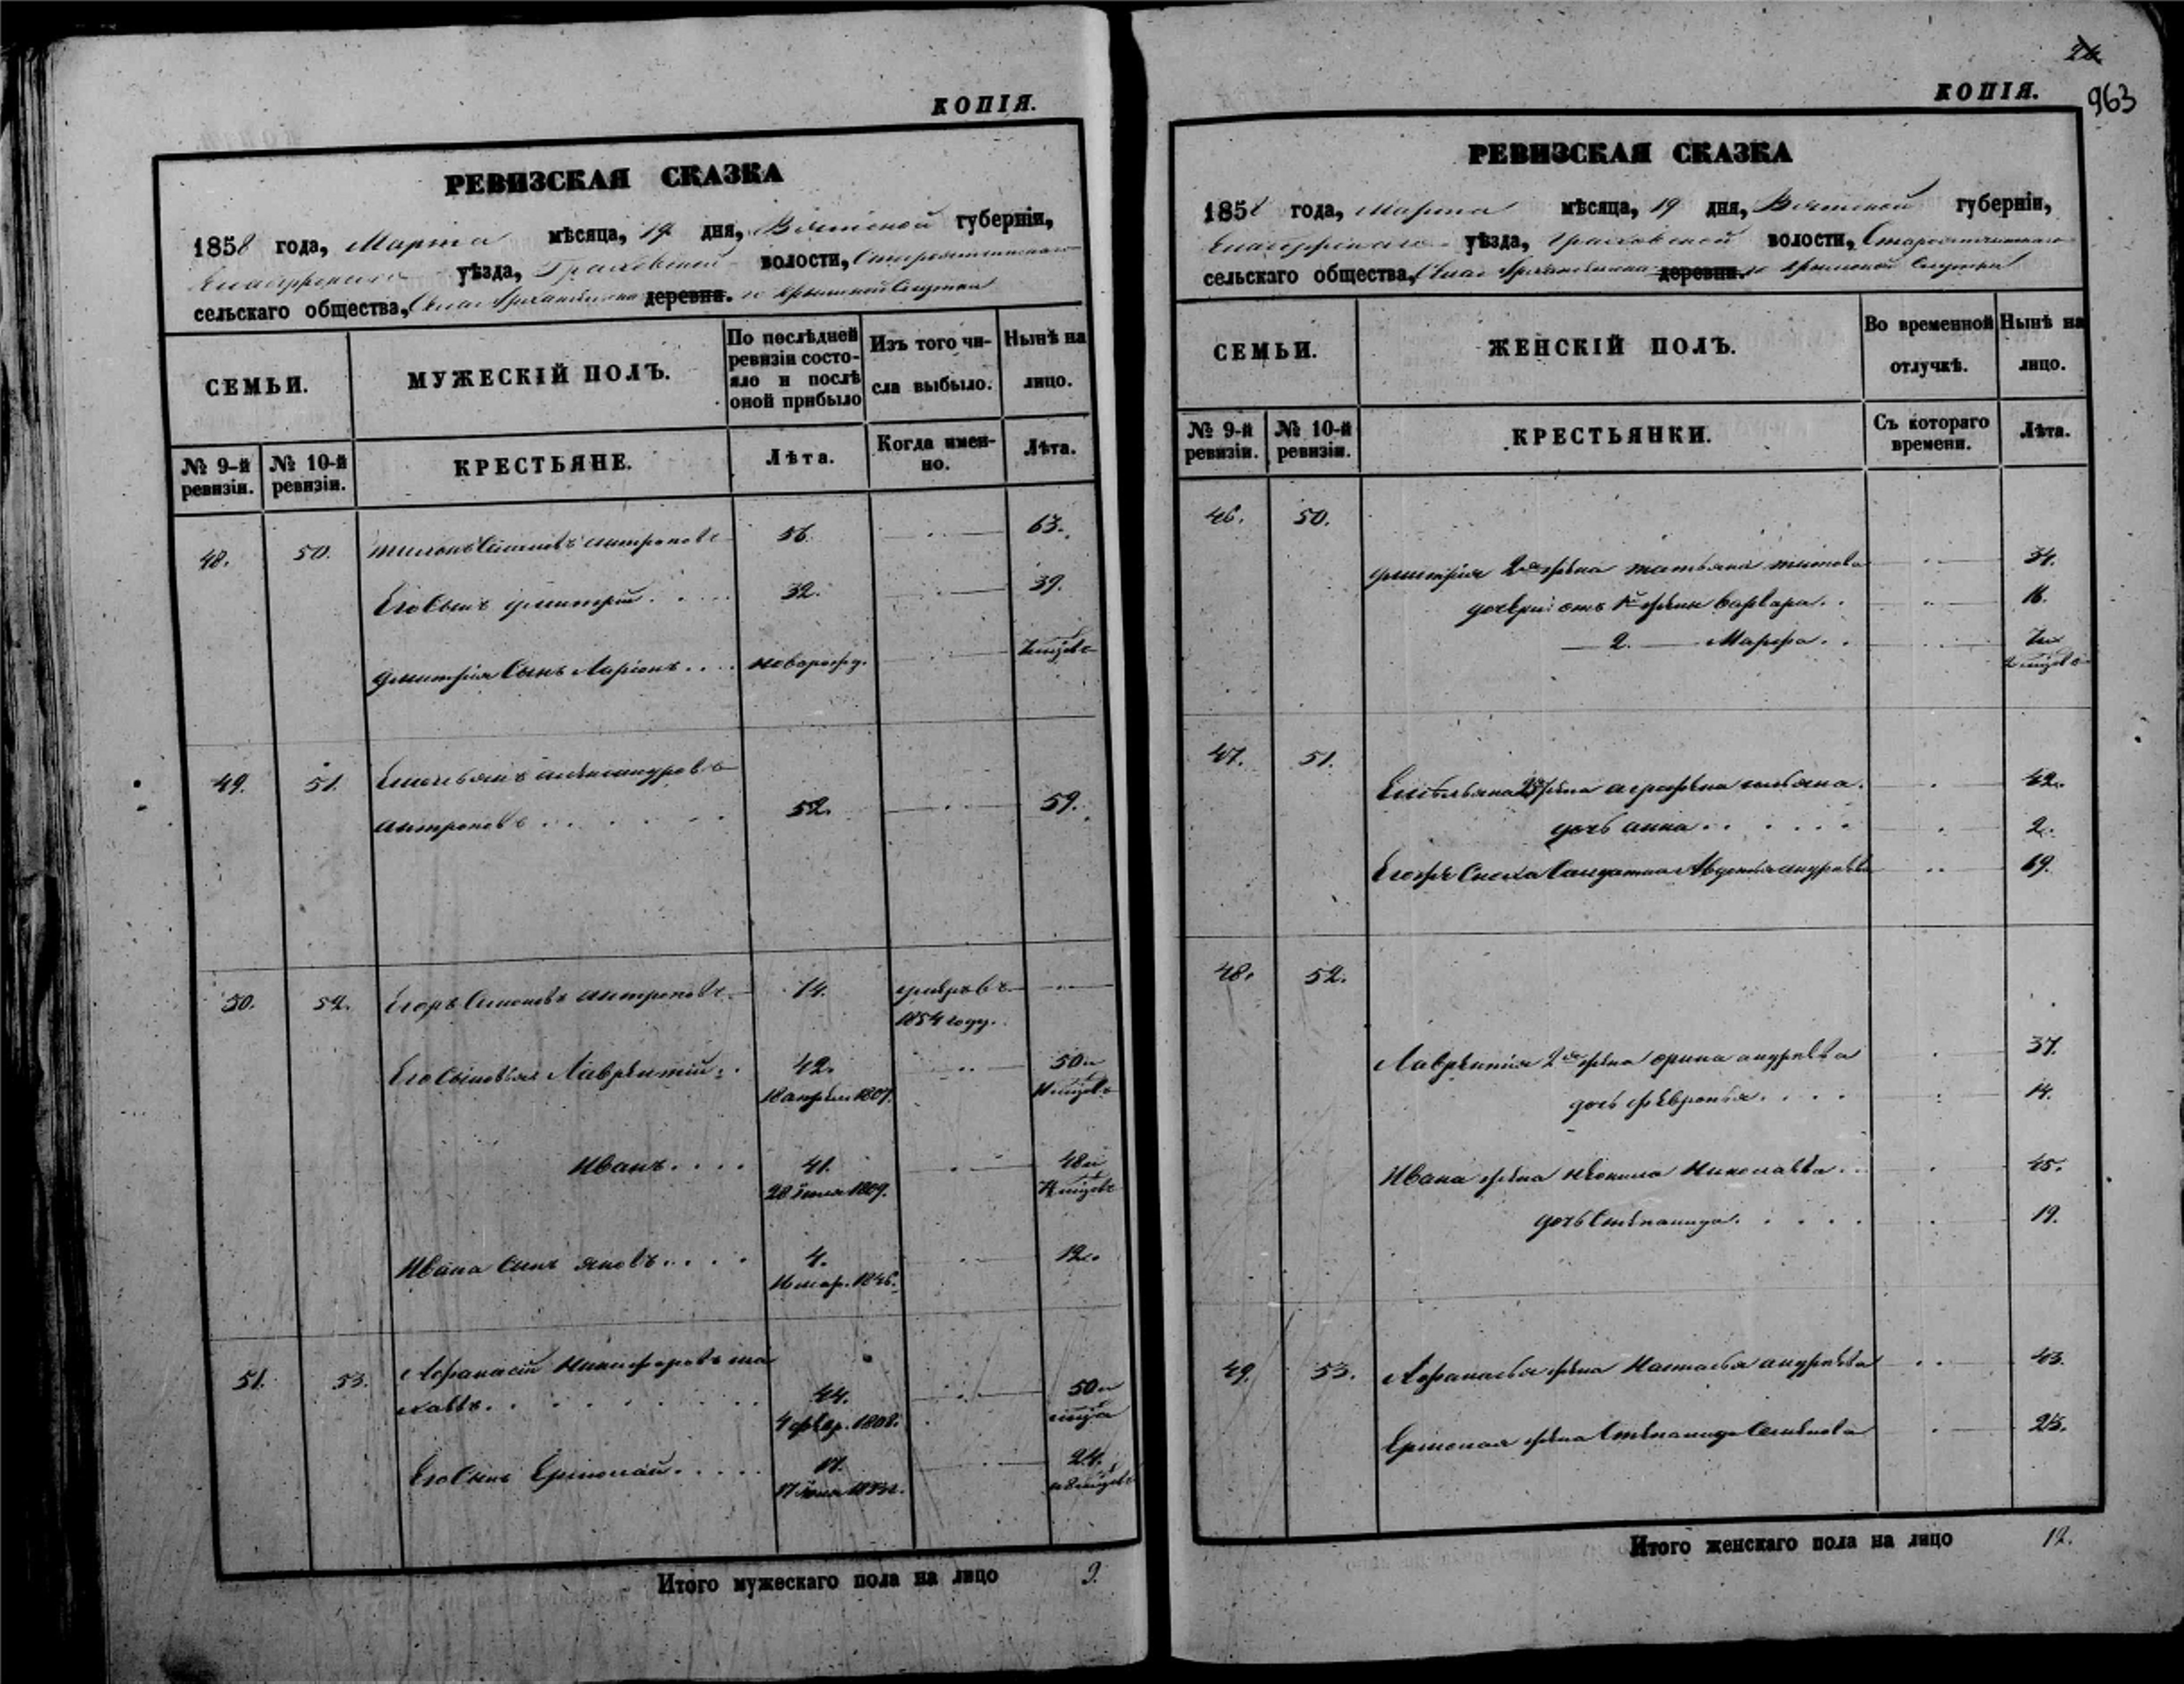 КОПІЯ.
РЕВИЗСКАЯ СКАЗКА
1858 года, Марта мѣсяца, 19 дня, Вятской губерніи,
уѣзда, Граховской волости,
сельскаго общества, Села деревни.
СЕМЬИ.
МУЖЕСКІЙ ПОЛЪ.
По послѣдней ревизіи состояло и послѣ оной прибыло
Изъ того числа выбыло.
Нынѣ на лицо.
№ 9-й ревизіи.
№ 10-й ревизіи.
КРЕСТЬЯНЕ.
Лѣта.
Когда именно.
Лѣта.
48. 50. Семеновъ Антроповъ 56. 63.
Его сынъ Дмитрій 32. 39.
Дмитрія сынъ Ларіонъ новорожд.
49. 51. Емельянъ Александровъ
Антроповъ 52. 59.
50. 52. Егоръ Семеновъ Антроповъ 74. умеръ въ
1854 году.
Его сыновья Лаврентій 42. 50 и
18 апреля 1807. 11 мѣцовъ
Иванъ 41. 48 и
28 іюля 1809. 7 мѣцовъ
Ивана сынъ Яковъ 4. 12.
16 мар. 1846.
51. 53. Афанасій Никифоровъ
44. 50 и
4 февр. 1808. мѣца
Его сынъ Ермолай 17. 24.
17 іюля и 8 мѣцовъ
Итого мужескаго пола на лицо 9.
24
963
КОПІЯ.
РЕВИЗСКАЯ СКАЗКА
1858 года, Марта мѣсяца, 19 дня, Вятской губерніи,
уѣзда, Граховской волости,
сельскаго общества, Села деревни.
СЕМЬИ.
ЖЕНСКІЙ ПОЛЪ.
Во временной отлучкѣ.
Нынѣ на лицо.
№ 9-й ревизіи.
№ 10-й ревизіи.
КРЕСТЬЯНКИ.
Съ котораго времени.
Лѣта.
46. 50.
Дмитрія 2я жена Татьяна Титова 34.
дочери: отъ 1й жены Варвара 16.
2. Марфа
47. 51.
Емельяна 2я жена Аграфена 42.
дочь Анна 2.
Егожъ Сноха Солдатка Авдотья Андреева 69.
48. 52.
Лаврентія 2я жена Орина Андреева 37.
дочь Февронья 14.
Ивана жена Неонила Николаева 45.
дочь Степанида 19.
49. 53. Афанасья жена Настасья Андреева 43.
Ермолая жена Степанида Семенова 25.
Итого женскаго пола на лицо 12.